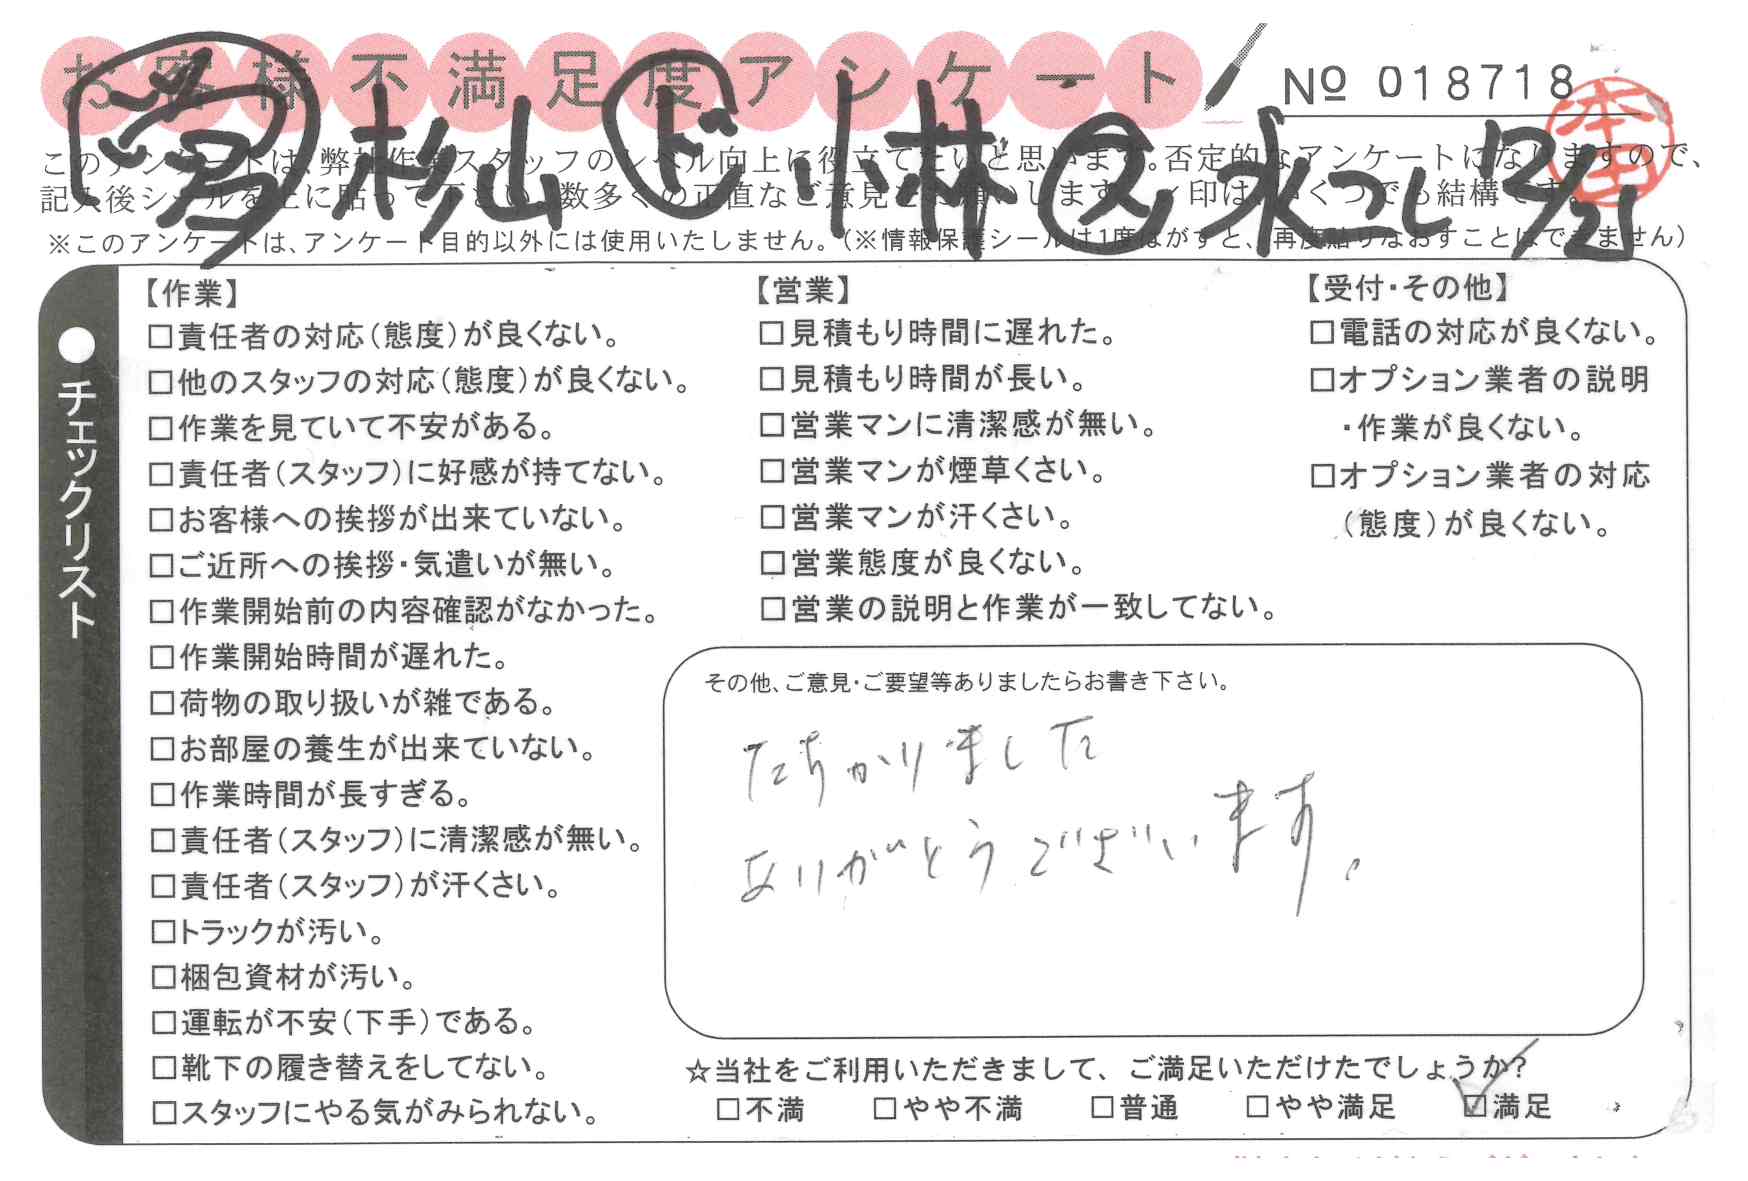 お客様不満足度アンケート
№ 018718
本田
営 杉山 ド 小林 ス 水つし 12/21
このアンケートは、弊社作業スタッフのレベル向上に役立てたいと思います。否定的なアンケートになりますので、
記入後シールを上に貼って下さい。数多くの正直なご意見をお願いします。✓印はいくつでも結構です。
※このアンケートは、アンケート目的以外には使用いたしません。(※情報保護シールは1度はがすと、再度貼りなおすことはできません)
●チェックリスト
【作業】
□責任者の対応(態度)が良くない。
□他のスタッフの対応(態度)が良くない。
□作業を見ていて不安がある。
□責任者(スタッフ)に好感が持てない。
□お客様への挨拶が出来ていない。
□ご近所への挨拶・気遣いが無い。
□作業開始前の内容確認がなかった。
□作業開始時間が遅れた。
□荷物の取り扱いが雑である。
□お部屋の養生が出来ていない。
□作業時間が長すぎる。
□責任者(スタッフ)に清潔感が無い。
□責任者(スタッフ)が汗くさい。
□トラックが汚い。
□梱包資材が汚い。
□運転が不安(下手)である。
□靴下の履き替えをしてない。
□スタッフにやる気がみられない。
【営業】
□見積もり時間に遅れた。
□見積もり時間が長い。
□営業マンに清潔感が無い。
□営業マンが煙草くさい。
□営業マンが汗くさい。
□営業態度が良くない。
□営業の説明と作業が一致してない。
【受付・その他】
□電話の対応が良くない。
□オプション業者の説明
・作業が良くない。
□オプション業者の対応
(態度)が良くない。
その他、ご意見・ご要望等ありましたらお書き下さい。
たすかりました
ありがとうございます。
☆当社をご利用いただきまして、ご満足いただけたでしょうか?
□不満 □やや不満 □普通 □やや満足 ☑満足